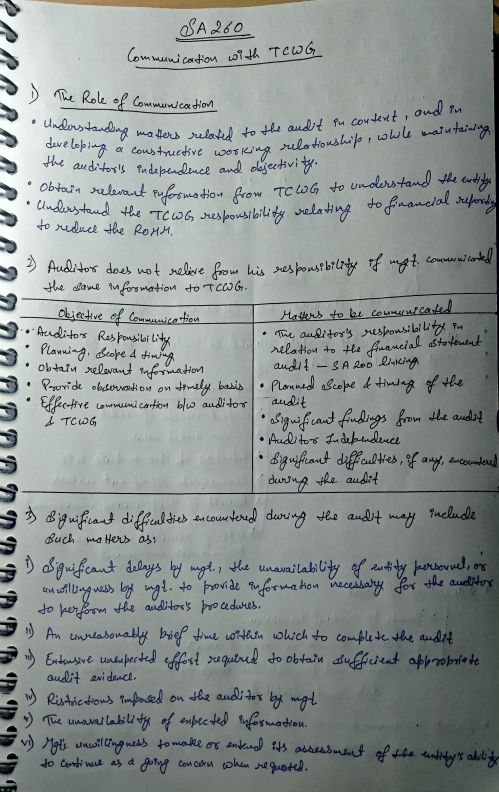 SA 260
Communication with TCWG
1) The Role of Communication
• Understanding matters related to the audit in context, and in
developing a constructive working relationship, while maintaining
the auditor's independence and objectivity.
• Obtain relevant information from TCWG to understand the entity
• Understand the TCWG responsibility relating to financial reporting
to reduce the ROMM.
2) Auditor does not relieve from his responsibility if mgt. communicated
the same information to TCWG.
Objective of Communication
• Auditor Responsibility
• Planning, scope & timing
• Obtain relevant information
• Provide observation on timely basis
• Effective communication b/w auditor
& TCWG
Matters to be communicated
• The auditor's responsibility in
relation to the financial statement
audit - SA 200 linking
• Planned scope & timing of the
audit
• Significant findings from the audit
• Auditor Independence
• Significant difficulties, if any, encountered
during the audit
3) Significant difficulties encountered during the audit may include
such matters as:
i) Significant delays by mgt., the unavailability of entity personnel, or
unwillingness by mgt. to provide information necessary for the auditor
to perform the auditor's procedures.
ii) An unreasonably brief time within which to complete the audit
iii) Extensive unexpected effort required to obtain sufficient appropriate
audit evidence.
iv) Ristrictions imposed on the auditor by mgt
v) The unavailability of expected information.
vi) Mgt's unwillingness to make or extend its assessment of the entity's ability
to continue as a going concern when requested.